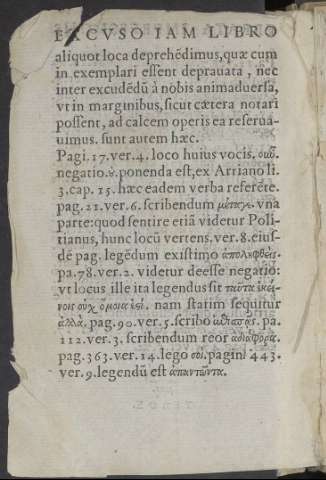 EXCVSO IAM LIBRO
aliquot loca deprehēdimus, quæ cum
in exemplari essent deprauata, nec
inter excudēdū à nobis animaduersa,
vt in marginibus, sicut cætera notari
possent, ad calcem operis ea reserua-
uimus. sunt autem hæc.
Pagi. 17. ver. 4. loco huius vocis.
negatio. ponenda est, ex Arriano li.
3. cap. 15. hæc eadem verba referēte.
pag. 21. ver. 6. scribendum vna
parte: quod sentire etiā videtur Poli-
tianus, hunc locū vertens. ver. 8. eius-
dē pag. legēdum existimo ἀποληφθείς.
pa. 78. ver. 2. videtur deesse negatio:
vt locus ille ita legendus sit ταῦτα ἐκεί-
νοις οὐχ ὅμοιά ἐστι. nam statim sequitur
ἀλλὰ. pag. 90. ver. 5. scribo pa.
112. ver. 3. scribendum reor ἀδιάφορα.
pag. 363. ver. 14. lego σοι. pagin. 443.
ver. 9. legendū est ἀπαντῶντα.